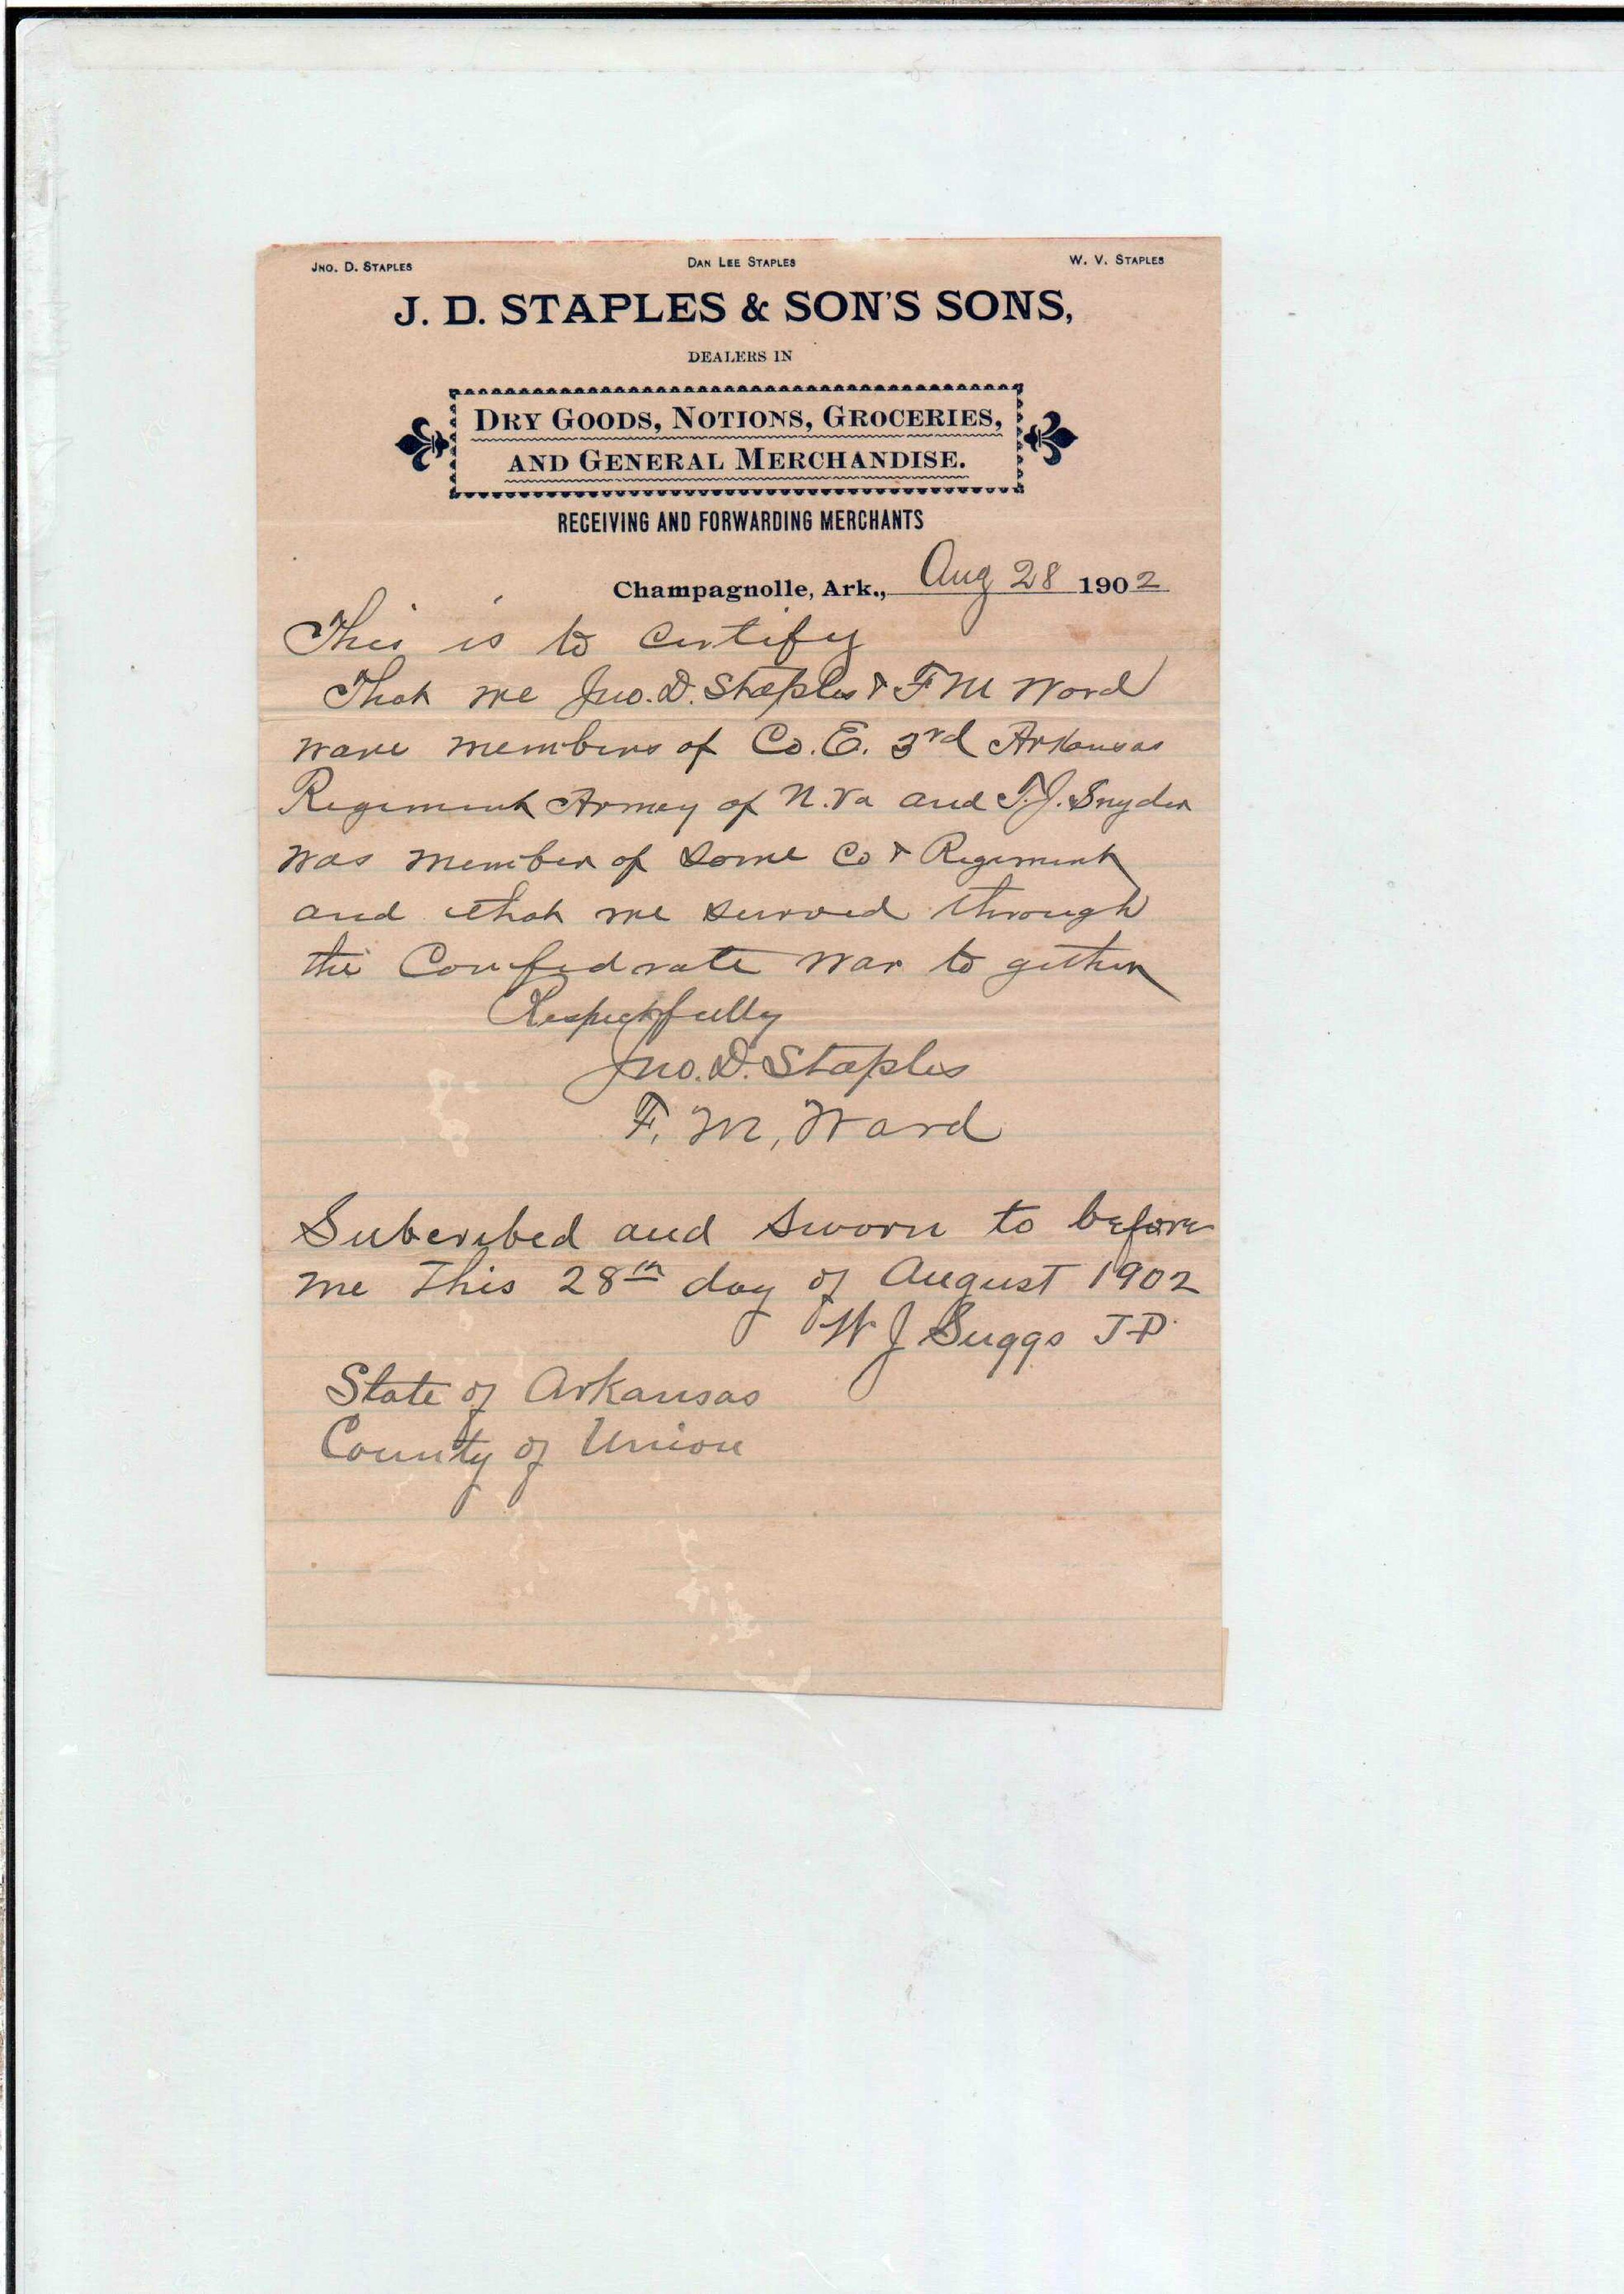 JNO. D. STAPLES DAN LEE STAPLES W. V. STAPLES
J. D. STAPLES & SON'S SONS,
DEALERS IN
DRY GOODS, NOTIONS, GROCERIES,
AND GENERAL MERCHANDISE.
RECEIVING AND FORWARDING MERCHANTS
Champagnolle, Ark., Aug 28 1902
This is to certify
That we Jno. D. Staples & F M Word
ware members of Co. E. 3rd Arkansas
Regiment Armey of N. Va and T. J. Snyder
was member of same Co & Regiment
and that we survod through
the Confedrate war to gether
Respectfully
Jno. D. Staples
F. M, Ward
Subcribed and sworn to before
me This 28th day of August 1902
W J Suggs J P.
State of Arkansas
County of Union